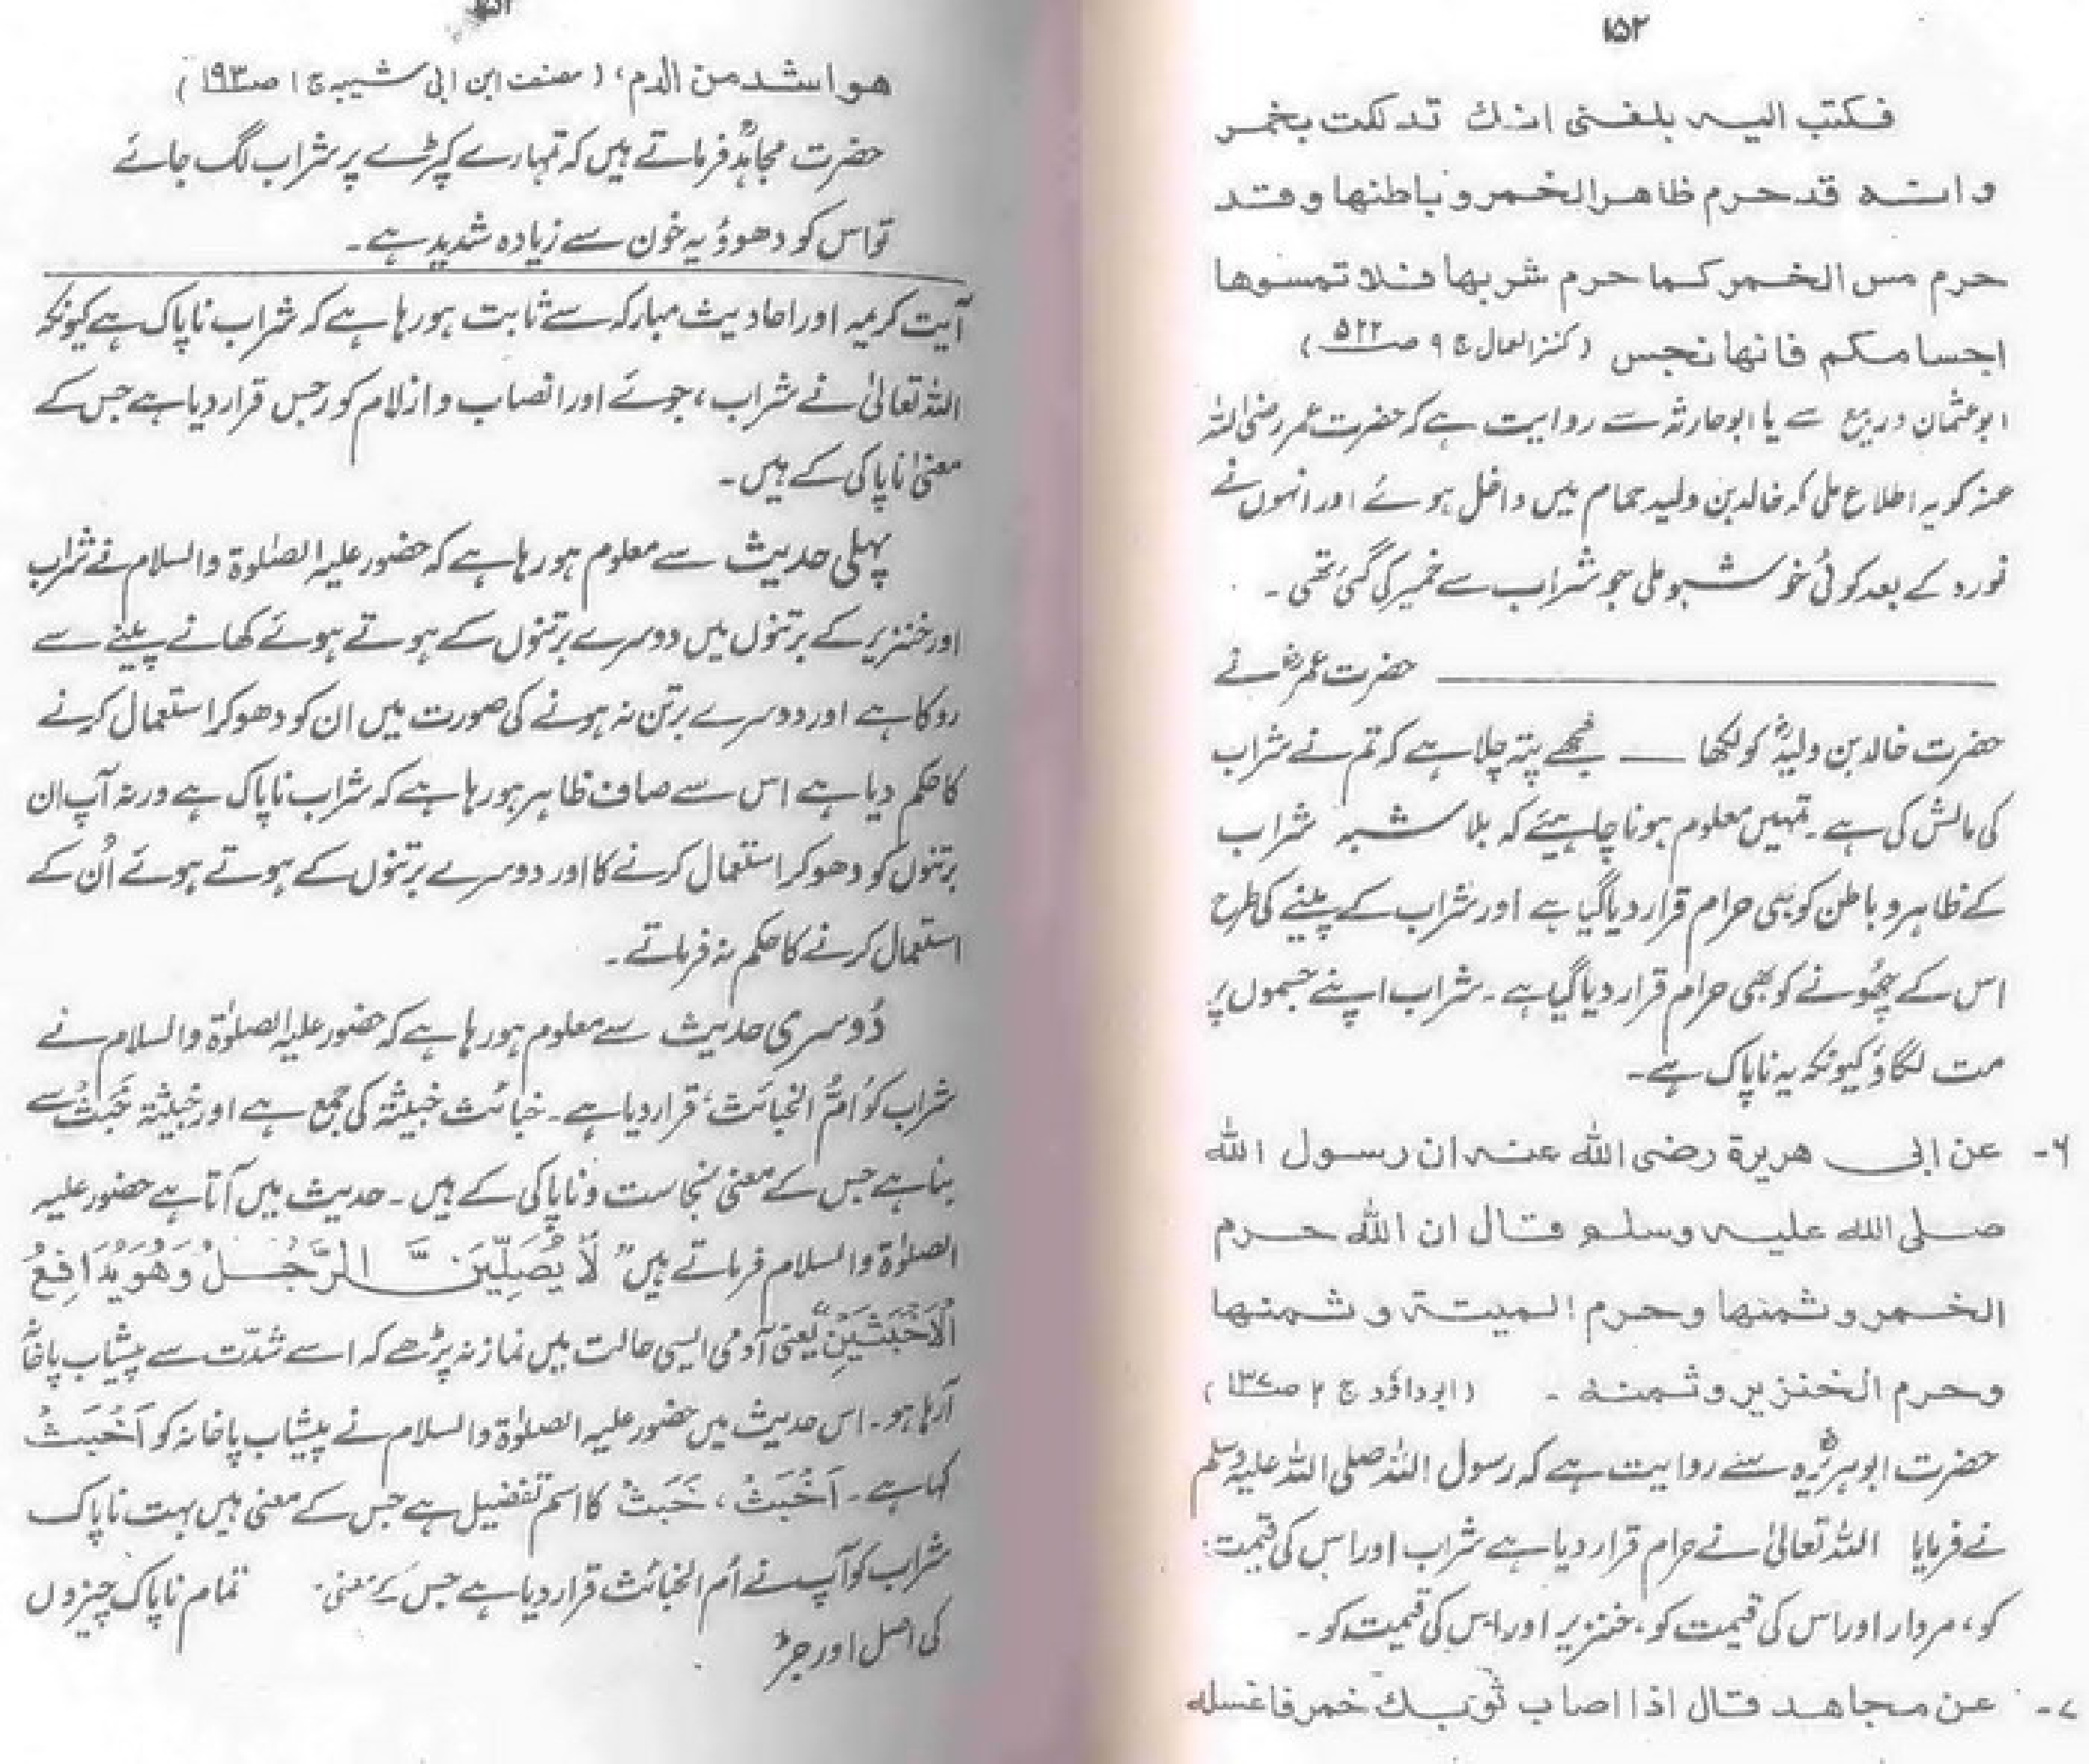 ۱۵۲
فکتب الیہ بلغنی انک تدلکت بخمر
واللہ قد حرم ظاهر الخمر و باطنها وقد
حرم مس الخمر کما حرم شربها فلا تمسوها
اجسامکم فانها نجس (کنز العمال ج ۹ ص ۵۲۲)
ابو عثمان و ربیع سے یا ابو حارثہ سے روایت ہے کہ حضرت عمر رضی اللہ
عنہ کو یہ اطلاع ملی کہ خالد بن ولید حمام میں داخل ہوئے اور انہوں نے
نورہ کے بعد کوئی خوشبو ملی جو شراب سے خمیر کی گئی تھی۔
حضرت عمرؓ نے
حضرت خالد بن ولیدؓ کو لکھا — مجھے پتہ چلا ہے کہ تم نے شراب
کی مالش کی ہے۔ تمہیں معلوم ہونا چاہیئے کہ بلا شبہ شراب
کے ظاہر و باطن کو بھی حرام قرار دیا گیا ہے اور شراب کے پینے کی طرح
اس کے چھُونے کو بھی حرام قرار دیا گیا ہے۔ شراب اپنے جسموں پر
مت لگاؤ کیونکہ یہ ناپاک ہے۔
۶- عن ابی هریرة رضی الله عنه ان رسول الله
صلی الله علیه وسلم قال ان الله حرم
الخمر و ثمنها وحرم المیتة و ثمنها
وحرم الخنزیر و ثمنه ۔ (ابو داؤد ج ۲ ص ۱۳۷)
حضرت ابو ہریرہؓ سے روایت ہے کہ رسول اللہ صلی اللہ علیہ وسلم
نے فرمایا اللہ تعالیٰ نے حرام قرار دیا ہے شراب اور اس کی قیمت
کو، مردار اور اس کی قیمت کو، خنزیر اور اس کی قیمت کو۔
۷- عن مجاهد قال اذا اصاب ثوبک خمر فاغسله
هو اشد من الدم، (مصنف ابن ابی شیبہ ج ۱ ص ۱۹۳)
حضرت مجاہدؒ فرماتے ہیں کہ تمہارے کپڑے پر شراب لگ جائے
تو اس کو دھوؤ یہ خون سے زیادہ شدید ہے۔
آیت کریمہ اور احادیث مبارکہ سے ثابت ہو رہا ہے کہ شراب ناپاک ہے کیونکہ
اللہ تعالیٰ نے شراب، جوئے اور انصاب و ازلام کو رجس قرار دیا ہے جس کے
معنیٰ ناپاکی کے ہیں۔
پہلی حدیث سے معلوم ہو رہا ہے کہ حضور علیہ الصلوٰۃ والسلام نے شراب
اور خنزیر کے برتنوں میں دوسرے برتنوں کے ہوتے ہوئے کھانے پینے سے
روکا ہے اور دوسرے برتن نہ ہونے کی صورت میں ان کو دھو کر استعمال کرنے
کا حکم دیا ہے اس سے صاف ظاہر ہو رہا ہے کہ شراب ناپاک ہے ورنہ آپ ان
برتنوں کو دھو کر استعمال کرنے کا اور دوسرے برتنوں کے ہوتے ہوئے اُن کے
استعمال کرنے کا حکم نہ فرماتے۔
دُوسری حدیث سے معلوم ہو رہا ہے کہ حضور علیہ الصلوٰۃ والسلام نے
شراب کو اُمُّ الخبائث، قرار دیا ہے۔ خبائث خبیثۃ کی جمع ہے اور خبیثۃ خَبَثٌ سے
بنا ہے جس کے معنی نجاست و ناپاکی کے ہیں۔ حدیث میں آتا ہے حضور علیہ
الصلوٰۃ والسلام فرماتے ہیں ”لَا یُصَلِّیَنَّ الرَّجُلُ وَهُوَ یُدَافِعُ
الْاَخْبَثَیْنِ“ یعنی آدمی ایسی حالت میں نماز نہ پڑھے کہ اسے شدّت سے پیشاب پاخانہ
آرہا ہو۔ اس حدیث میں حضور علیہ الصلوٰۃ والسلام نے پیشاب پاخانہ کو اَخْبَثُ
کہا ہے۔ اَخْبَثُ، خَبَثٌ کا اسم تفضیل ہے جس کے معنی ہیں بہت ناپاک
شراب کو آپ نے اُم الخبائث قرار دیا ہے جس کے معنی۔ تمام ناپاک چیزوں
کی اصل اور جڑ